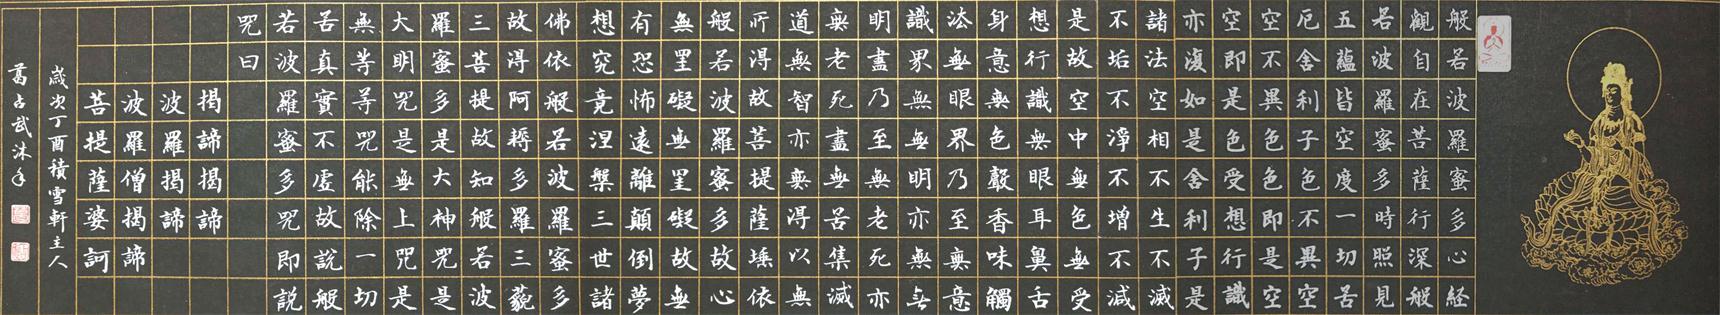 般若波羅蜜多心経
觀自在菩薩行深般
若波羅蜜多時照見
五蘊皆空度一切苦
厄舍利子色不異空
空不異色色即是空
空即是色受想行識
亦復如是舍利子是
諸法空相不生不滅
不垢不淨不增不減
是故空中無色無受
想行識無眼耳鼻舌
身意無色聲香味觸
法無眼界乃至無意
識界無無明亦無無
明盡乃至無老死亦
無老死盡無苦集滅
道無智亦無得以無
所得故菩提薩埵依
般若波羅蜜多故心
無罣礙無罣礙故無
有恐怖遠離顛倒夢
想究竟涅槃三世諸
佛依般若波羅蜜多
故得阿耨多羅三藐
三菩提故知般若波
羅蜜多是大神咒是
大明咒是無上咒是
無等等咒能除一切
苦真實不虛故說般
若波羅蜜多咒即說
咒曰
揭諦揭諦
波羅揭諦
波羅僧揭諦
菩提薩婆訶
歲次丁酉積雪軒主人
葛占武沐手